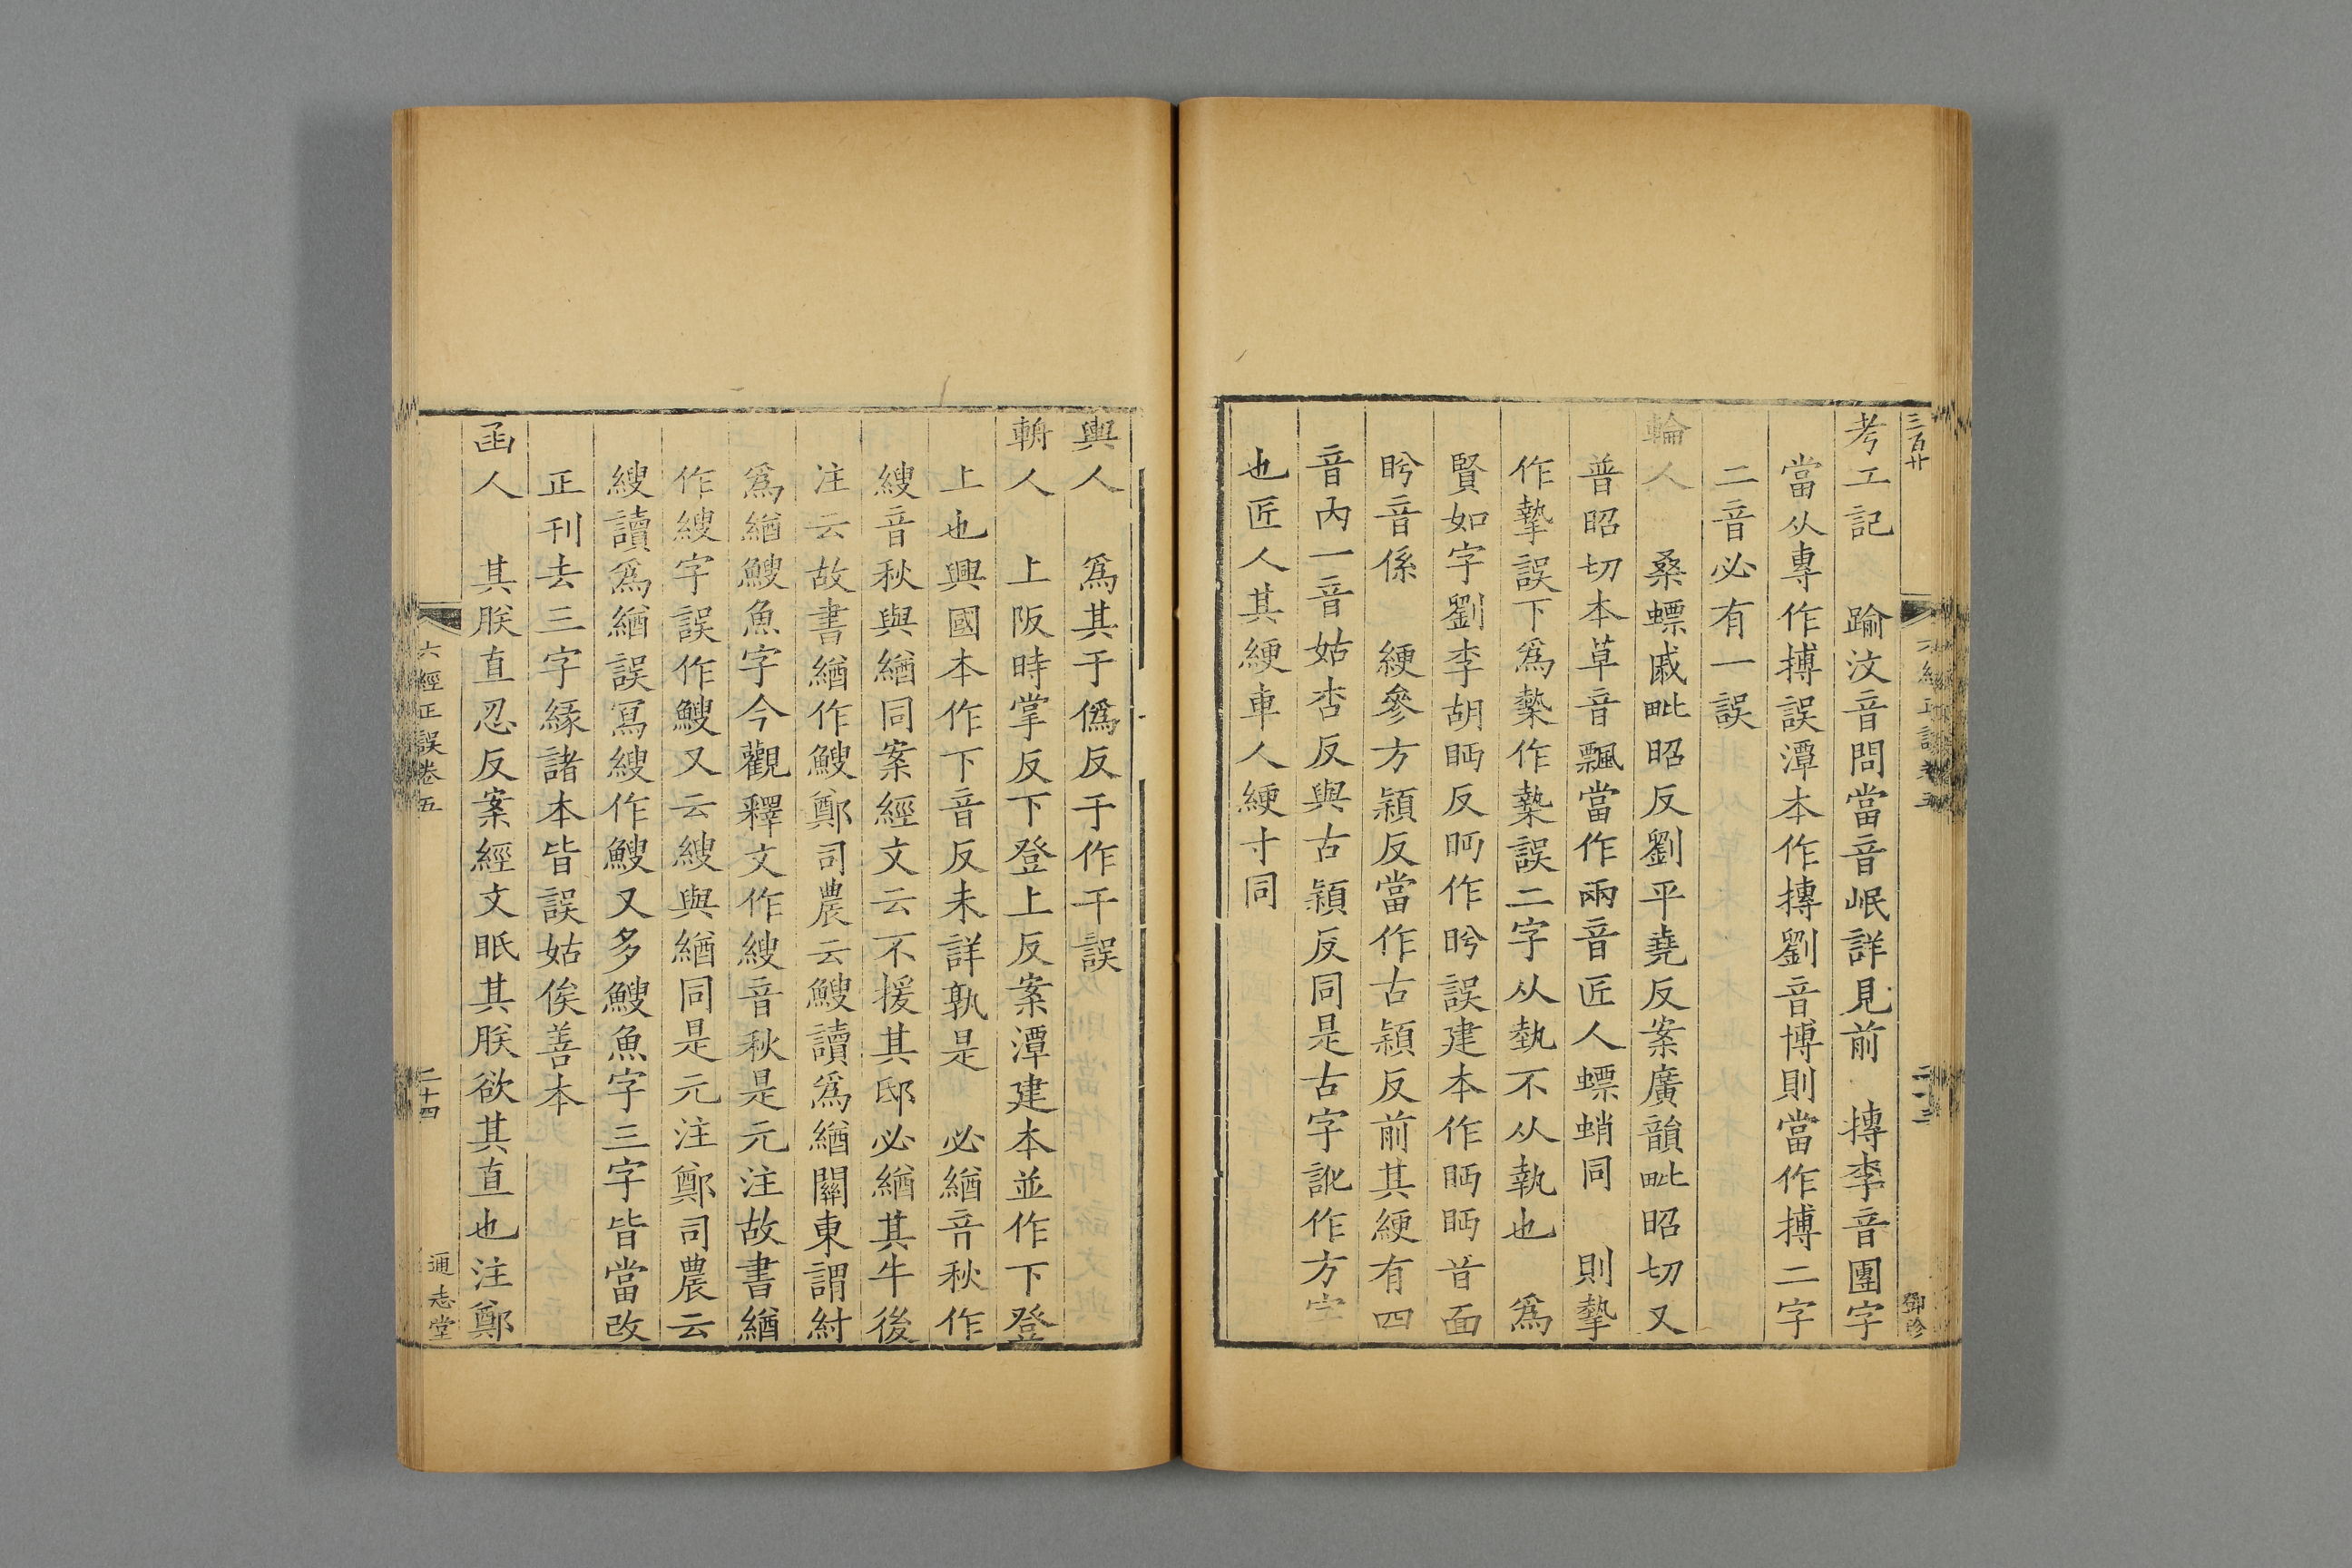 三百廿
考工記 踰汶音問當音岷詳見前 摶李音團字
當从專作摶誤潭本作摶劉音博則當作摶二字
二音必有一誤
輪人 桑螵戚毗昭反劉平堯反案廣韻毗昭切又
普昭切本草音飄當作兩音匠人螵蛸同 則摯
作摯誤下爲槷作槷誤二字从埶不从執也 爲
賢如字劉李胡眄反眄作盻誤建本作眄眄音面
盻音係 綆參方潁反當作古潁反前其綆有四
音內一音姑杏反與古潁反同是古字訛作方字
也匠人其綆車人綆寸同
鄧珍
輿人 爲其于僞反于作干誤
輈人 上阪時掌反下登上反案潭建本並作下登
上也興國本作下音反未詳孰是 必緧音秋作
緮音秋與緧同案經文云不援其邸必緧其牛後
注云故書緧作鰒鄭司農云鰒讀爲緧關東謂紂
爲緧鰒魚字今觀釋文作緮音秋是元注故書緧
作緮字誤作鰒又云緮與緧同是元注鄭司農云
緮讀爲緧誤寫緮作鰒又多鰒魚字三字皆當改
正刊去三字緣諸本皆誤姑俟善本
函人 其朕直忍反案經文眡其朕欲其直也注鄭
六經正誤卷五
二十四
通志堂